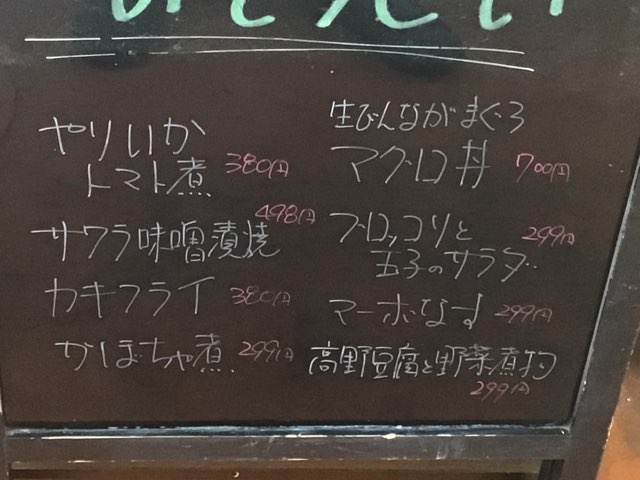 やりいか
トマト煮 380円
サワラ味噌漬焼 498円
カキフライ 380円
かぼちゃ煮 299円
生びんながまぐろ
マグロ丼 700円
ブロッコリと 299円
玉子のサラダ
マーボなす 299円
高野豆腐と野菜煮物
299円